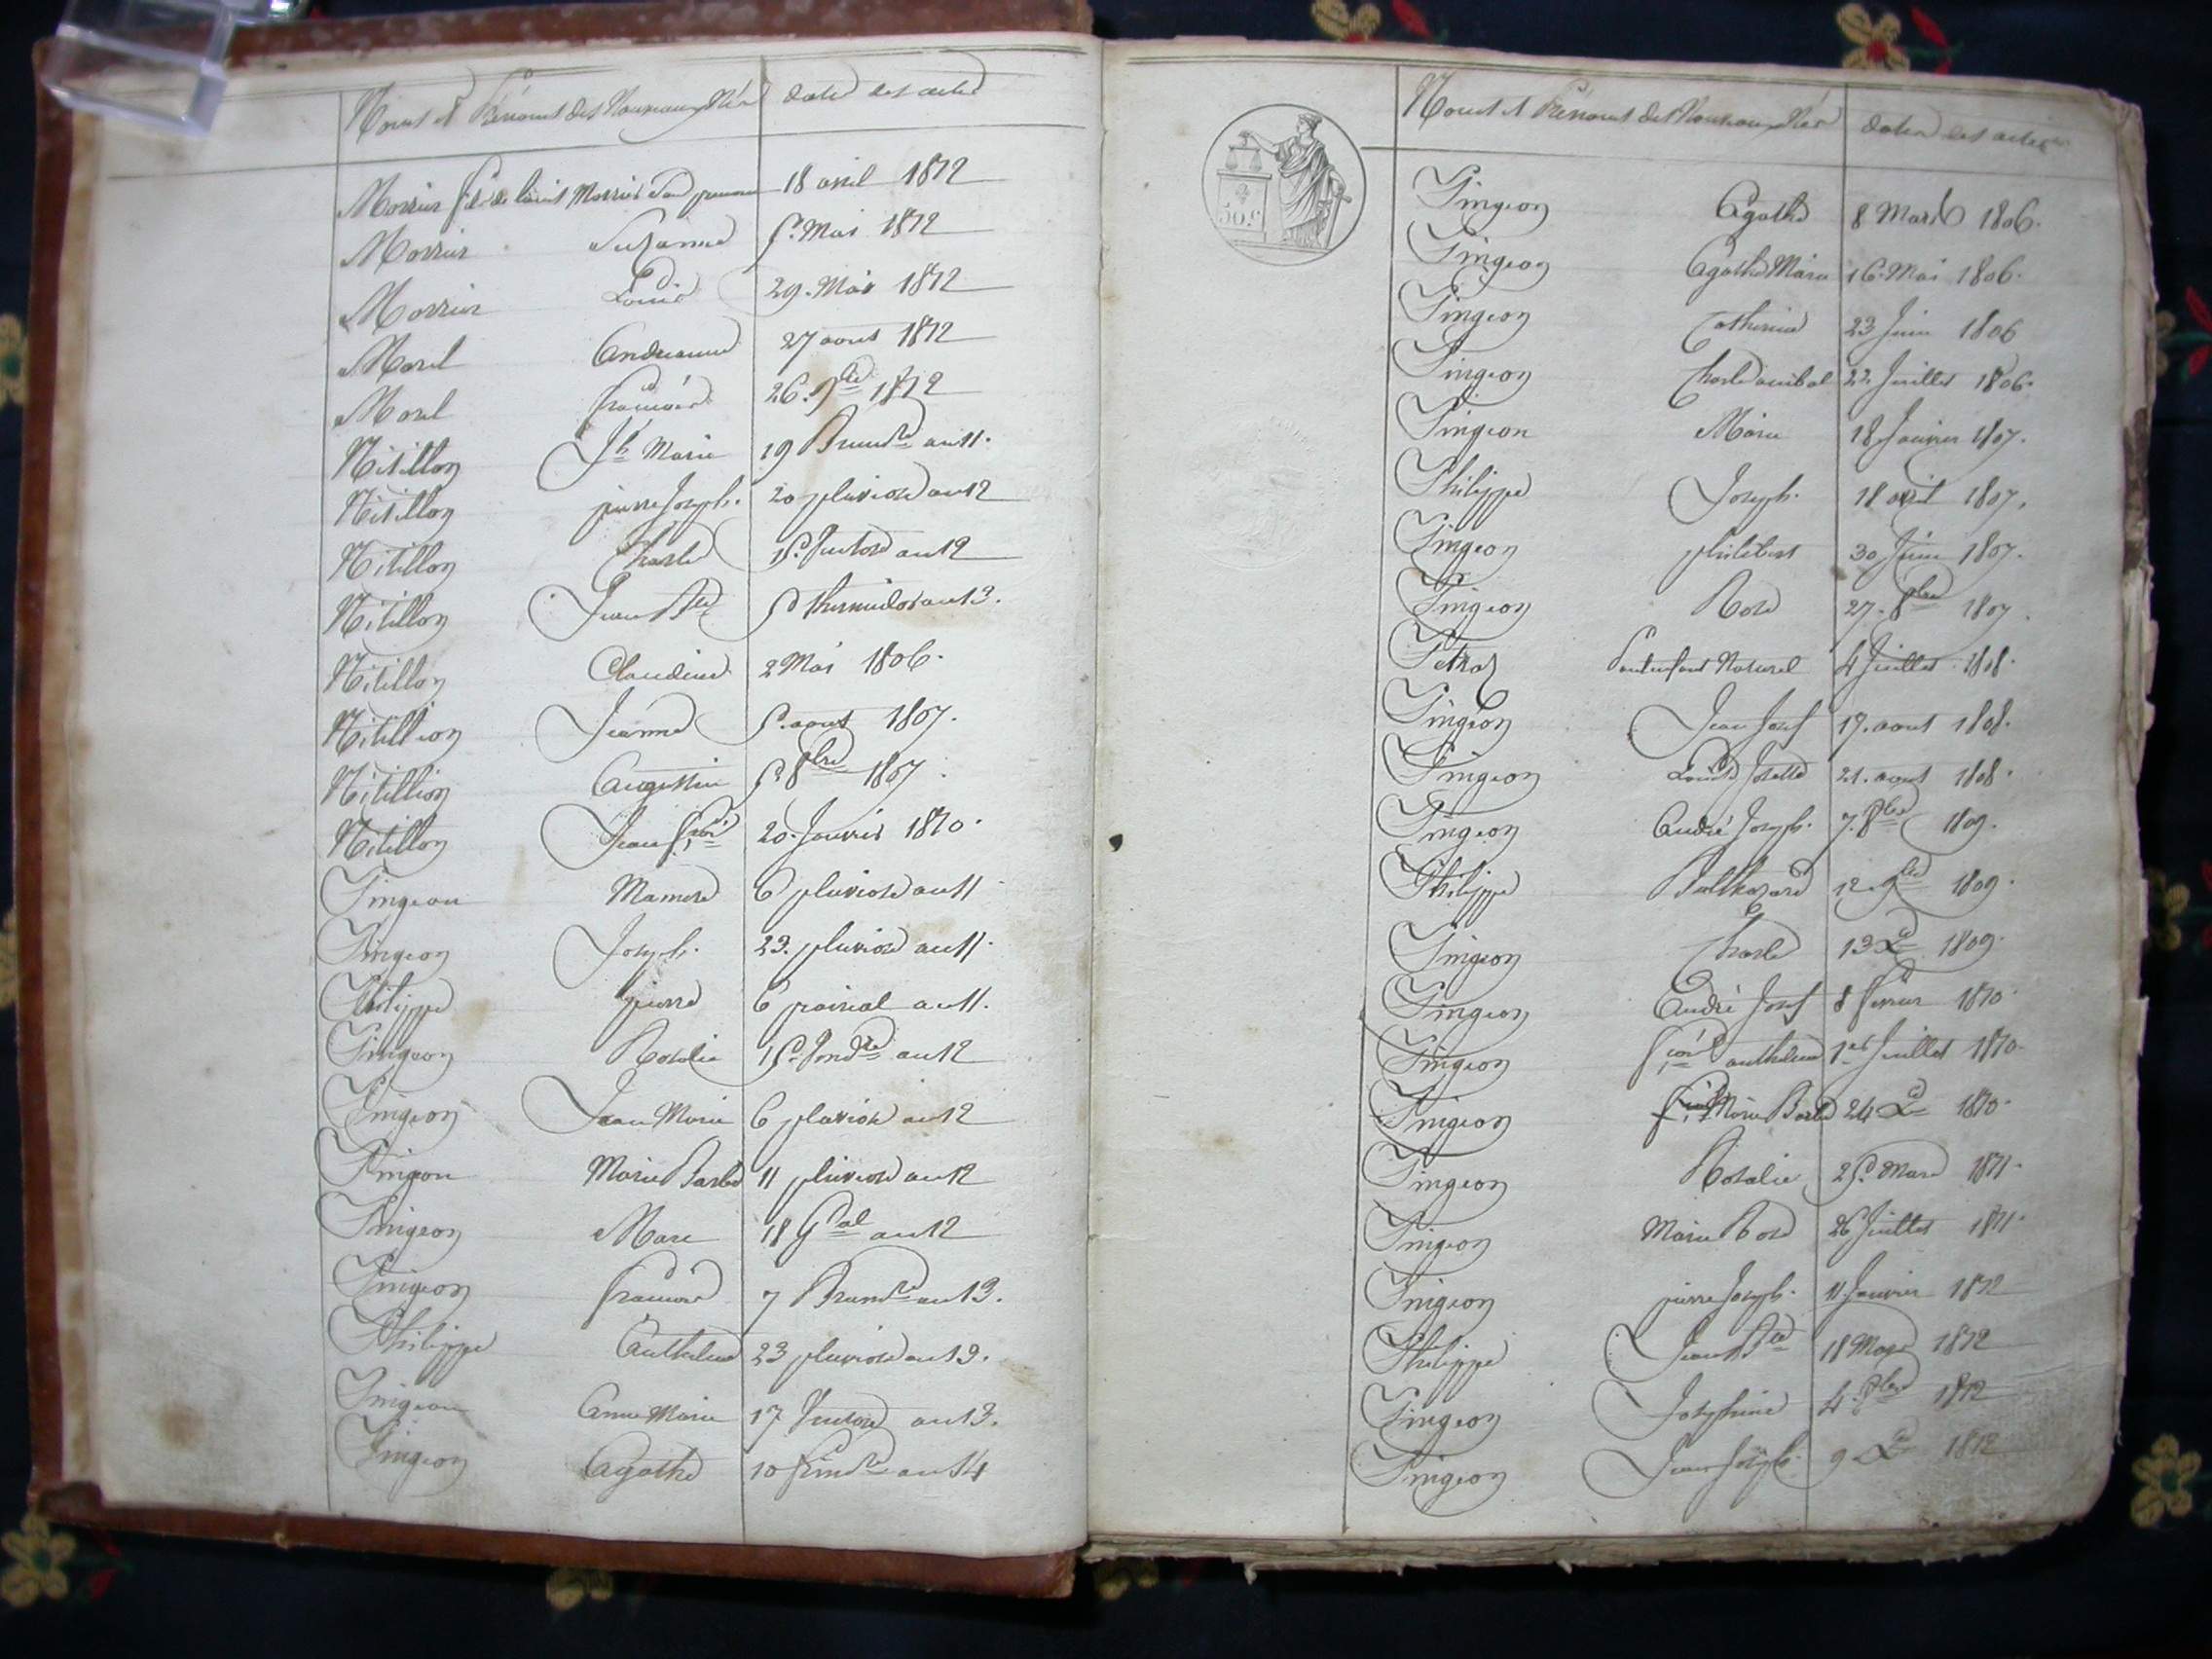 Noms et Prénoms des Nouveaux Nés dates des actes
Morrier fils de Louis Morrier sans prenom 18 avril 1812
Morrier Suzanne 5. Mai 1812
Morrier Louis 29. Mai 1812
Morel Andreanne 27 aout 1812
Morel francois 26. 9bre 1812
Nitillon Jh Marie 19 Brumre an 11.
Nitillon pierre Joseph. 20 pluviose an 12
Nitillon Charle 15. Ventose an 12
Nitillon Jean Bte 5 thermidor an 13.
Nitillon Claudine 2 Mai 1806.
Nitillion Jeanne 5. aout 1807.
Nitillion Augustin 5. 8bre 1807.
Nitillon Jean fcois 20. Janvier 1810.
Pingeon Mamere 6 pluviose an 11
Pingeon Joseph. 23. pluviose an 11.
Philippe pierre 6 prairial an 11.
Pingeon Rosalie 15. Vendre an 12
Pingeon Jean Marie 6 pluviose an 12
Pingeon Marie Barbe 11 pluviose an 12
Pingeon Marc 18 Gal an 12
Pingeon francois 7 Brumre an 13.
Philippe Anthelme 23 pluviose an 13.
Pingeon Anne Marie 17 Ventose an 13.
Pingeon Agathe 10 frimre an 14
Noms et Prénoms des Nouveaux Nés dates des actes
50 c.
Pingeon Agathe 8 Mars 1806.
Pingeon Agathe Marie 16. Mai 1806.
Pingeon Catherine 23 Juin 1806
Pingeon Charle anibal 22 Juillet 1806.
Pingeon Marie 18. Janvier 1807.
Philippe Joseph. 18 avril 1807.
Pingeon philibert 30 Juin 1807.
Pingeon Rose 27. 8bre 1807.
Petraz enfant Naturel 4 Juillet 1808.
Pingeon Jean Josef 17. aout 1808.
Pingeon Louise Josette 21. aout 1808.
Pingeon André Joseph. 7. 8bre 1809.
Philippe Balthazard 12. 9bre 1809.
Pingeon Charle 13 de 1809.
Pingeon André Josef 8 fevrier 1810.
Pingeon fcois anthelme 1er Juillet 1810.
Pingeon Marie Barbe 24 de 1810.
Pingeon Rosalie 25. Mars 1811.
Pingeon Marie Rose 26 Juillet 1811.
Pingeon pierre Joseph. 11. Janvier 1812
Philippe Jean Bte 18 Mars 1812
Pingeon Josephine 4. 1812
Pingeon Jean Joseph. 9 de 1812